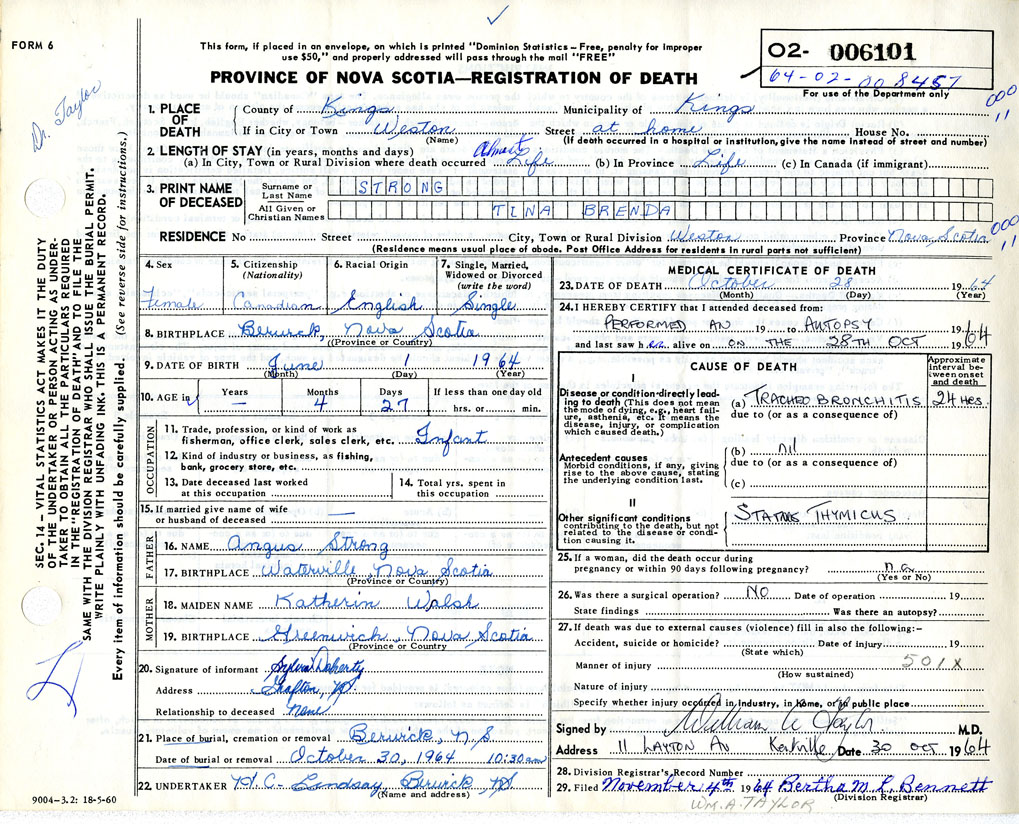 FORM 6
This form, if placed in an envelope, on which is printed "Dominion Statistics – Free, penalty for improper
use $50," and properly addressed will pass through the mail "FREE"
PROVINCE OF NOVA SCOTIA—REGISTRATION OF DEATH
02- 006101
64-02-008457
For use of the Department only
Dr. Taylor
1. PLACE OF DEATH
County of Kings Municipality of Kings
If in City or Town Weston Street at home House No.
(Name) (If death occurred in a hospital or institution, give the name instead of street and number)
2. LENGTH OF STAY (in years, months and days)
(a) In City, Town or Rural Division where death occurred Life (b) In Province Life (c) In Canada (if immigrant)
000
11
3. PRINT NAME OF DECEASED
Surname or Last Name STRONG
All Given or Christian Names TINA BRENDA
RESIDENCE No Street City, Town or Rural Division Weston Province Nova Scotia
(Residence means usual place of abode. Post Office Address for residents in rural parts not sufficient)
000
11
SEC. 14 – VITAL STATISTICS ACT MAKES IT THE DUTY
OF THE UNDERTAKER OR PERSON ACTING AS UNDER-
TAKER TO OBTAIN ALL THE PARTICULARS REQUIRED
IN THE "REGISTRATION OF DEATH" AND TO FILE THE
SAME WITH THE DIVISION REGISTRAR WHO SHALL ISSUE THE BURIAL PERMIT.
WRITE PLAINLY WITH UNFADING INK. THIS IS A PERMANENT RECORD.
Every item of information should be carefully supplied. (See reverse side for instructions.)
4. Sex
Female
5. Citizenship (Nationality)
Canadian
6. Racial Origin
English
7. Single, Married, Widowed or Divorced (write the word)
Single
8. BIRTHPLACE Berwick, Nova Scotia
(Province or Country)
9. DATE OF BIRTH June 1 1964
(Month) (Day) (Year)
10. AGE in
Years —
Months 4
Days 27
If less than one day old
hrs. or min.
OCCUPATION
11. Trade, profession, or kind of work as
fisherman, office clerk, sales clerk, etc. Infant
12. Kind of industry or business, as fishing,
bank, grocery store, etc.
13. Date deceased last worked
at this occupation
14. Total yrs. spent in
this occupation
15. If married give name of wife
or husband of deceased —
FATHER
16. NAME Angus Strong
17. BIRTHPLACE Waterville, Nova Scotia
(Province or Country)
MOTHER
18. MAIDEN NAME Katherin Walsh
19. BIRTHPLACE Greenwich, Nova Scotia
(Province or Country
20. Signature of informant Sylvia Doherty
Address Grafton, NS
Relationship to deceased none
21. Place of burial, cremation or removal Berwick, N.S.
Date of burial or removal October 30, 1964 10:30am
22. UNDERTAKER H.C. Lindsay Berwick, NS
(Name and address)
9004-3.2: 18-5-60
MEDICAL CERTIFICATE OF DEATH
23. DATE OF DEATH October 28 1964
(Month) (Day) (Year)
24. I HEREBY CERTIFY that I attended deceased from:
PERFORMED AN 19 to AUTOPSY 1964
and last saw her alive on ON THE 28TH OCT 1964
CAUSE OF DEATH
Approximate interval between onset and death
I
Disease or condition directly leading to death (This does not mean
the mode of dying, e.g., heart failure, asthenia, etc. It means the
disease, injury, or complication which caused death.)
(a) TRACHEO BRONCHITIS 24 Hrs.
due to (or as a consequence of)
Antecedent causes
Morbid conditions, if any, giving
rise to the above cause, stating
the underlying condition last.
(b) nil
due to (or as a consequence of)
(c)
II
Other significant conditions
contributing to the death, but not
related to the disease or condition causing it.
STATUS THYMICUS
25. If a woman, did the death occur during
pregnancy or within 90 days following pregnancy? n.a
(Yes or No)
26. Was there a surgical operation? NO Date of operation 19
State findings Was there an autopsy?
27. If death was due to external causes (violence) fill in also the following:-
Accident, suicide or homicide? Date of injury 19
(State which)
Manner of injury 501X
(How sustained)
Nature of injury
Specify whether injury occurred in Industry, in home, or in public place
Signed by William A Taylor M.D.
Address 11 LAYTON AV Kentville Date 30 OCT 1964
28. Division Registrar's Record Number
29. Filed November 4th 1964 Bertha M. L. Bennett
(Division Registrar)
WM. A. TAYLOR